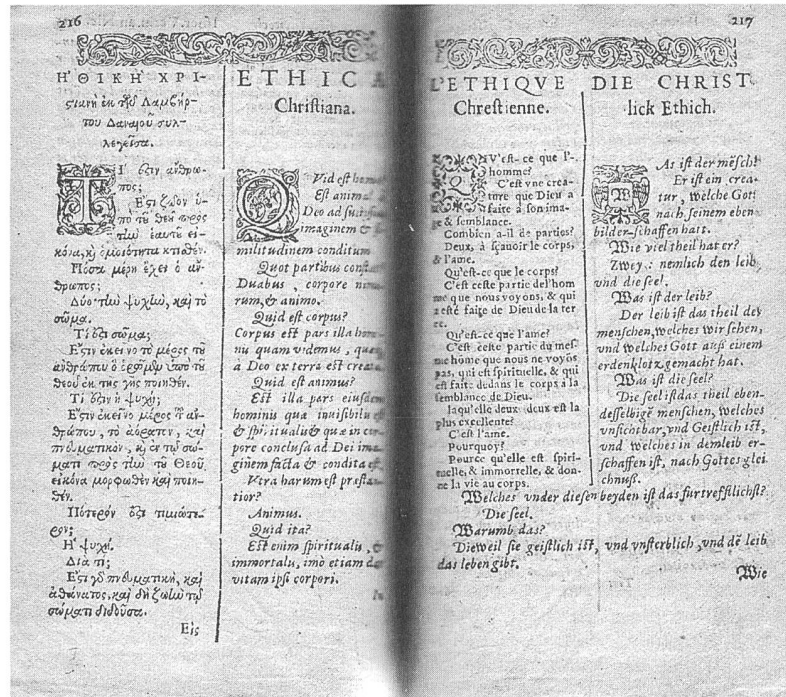 216
Η᾿ΘΙΚΗ᾿ ΧΡΙ-
ςιανὴ ἐκ τῶν Λαμβέρ-
του Δαναίου συλ-
λεγεῖσα.
ΤΙ ἐςιν ἄνθρω-
πος;
Ἔςι ζῶον ὑ-
πὸ τῦ θεῦ πρὸς
τὴν ἑαυτῦ εἰ-
κόνα, κὶ ὁμοιότητα κτισθέν.
Πόσα μέρη ἔχει ὁ ἄν-
θρωπος;
Δύο· τὴν ψυχὴν, καὶ τὸ
σῶμα.
Τί ἐςι σῶμα;
Ἔςιν ἐκεῖνο τὸ μέρος τῦ
ἀνθρώπου ὃ ὁρῶμεν ὑπὸ τῦ
θεοῦ ἐκ τῆς γῆς ποιηθέν.
Τί ἐςιν ἡ ψυχή;
Ἔςιν ἐκεῖνο μέρος τῦ ἀν-
θρώπου, τὸ ἀόρατον, καὶ
πνευματικὸν, κὶ ἐν τῷ σώ-
ματι πρὸς τὴν τοῦ Θεοῦ
εἰκόνα μορφωθὲν καὶ ποιη-
θέν.
Πότερόν ἐςι τιμιώτε-
ρον;
Ἡ ψυχή.
Διὰ τί;
Ἔςι γὸ πνευματικὴ, καὶ
ἀθάνατος, καὶ δὴ ζωὴν τῷ
σώματι διδοῦσα.
Εἰς
ETHICA
Chriſtiana.
QVid eſt hom
Eſt anima
Deo ad ſui
imaginem &
militudinem conditum
Quot partibus conſta
Duabus, corpore
rum, & animo.
Quid eſt corpus?
Corpus eſt pars illa
nu quam videmus,
à Deo ex terra eſt creat
Quid eſt animus?
Eſt illa pars eiuſdem
hominis quæ inuiſibilis
& ſpiritualis & quæ in cor
pore concluſa ad Dei ima
ginem facta & condita eſt
Vtra harum eſt præſta
tior?
Animus.
Quid ita?
Eſt enim ſpiritualis, &
immortalis, imò etiam
vitam ipſi corpori.
217
L'ETHIQVE
Chreſtienne.
QV'eſt-ce que l'
homme?
C'eſt vne crea-
ture que Dieu a
faite à ſon ima-
ge & ſemblance.
Combien a-il de parties?
Deux, à ſçauoir le corps,
& l'ame.
Qu'eſt-ce que le corps?
C'eſt ceſte partie del'hom
me que nous voyons, & qui
a eſté faite de Dieu de la ter
re.
Qu'eſt-ce que l'ame?
C'eſt ceſte partie du meſ
me home que nous ne voyõs
pas, qui eſt ſpirituelle, & qui
eſt faite dedans le corps à la
ſemblance de Dieu.
laqu'elle deux deux eſt la
plus excellente?
C'eſt l'ame.
Pourquoy?
Pource qu'elle eſt ſpiri-
tuelle, & immortelle, & don-
ne la vie au corps.
DIE CHRIST
lick Ethich.
WAs iſt der mẽſch?
Er iſt ein crea-
tur, welche Gott
nach ſeinem eben
bilder-ſchaffen hatt.
Wie viel theil hat er?
Zwey: nemlich den leib,
vnd die ſeel.
Was iſt der leib?
Der leib iſt das theil des
menſchen, welches wir ſehen,
vnd welches Gott auß einem
erdenklotz gemacht hat.
Was iſt die ſeel?
Die ſeel iſt das theil eben-
deſſelbigẽ menſchen, welches
vnſichtbar, vnd Geiſtlich iſt,
vnd welches in demleib er-
ſchaffen iſt, nach Gottes glei
chnuß.
Welches vnder dieſen beyden iſt das furtrefflichſt?
Die ſeel.
Warumb das?
Dieweil ſie geiſtlich iſt, vnd vnſterblich, vnd dẽ leib
das leben gibt.
Wie